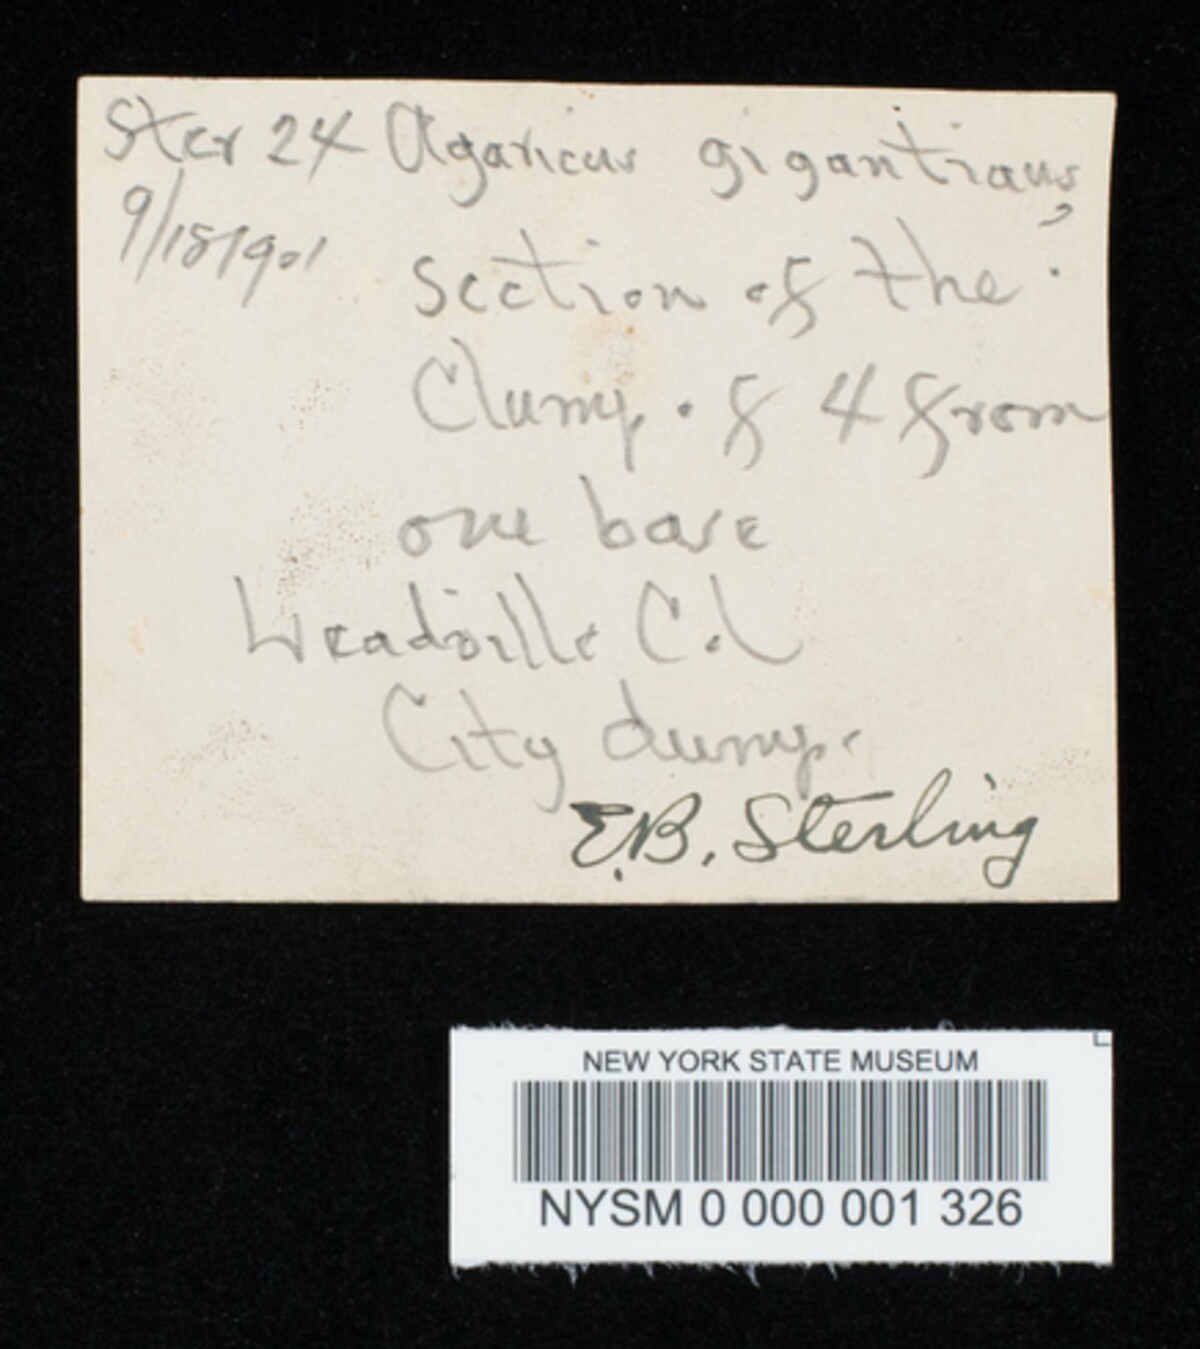 Ster 24 Agaricus gigantiaus,
9/18/901
section of the
Clump of 4 from
one base
Leadville Col
City dump.
E.B. Sterling
NEW YORK STATE MUSEUM
NYSM 0 000 001 326